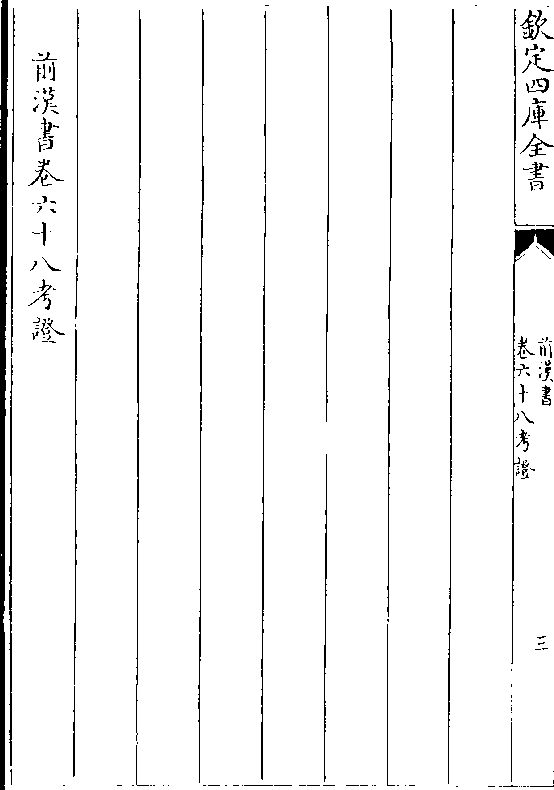 欽定四庫全書
前漢書
卷六十八考證
三
前漢書卷六十八考證